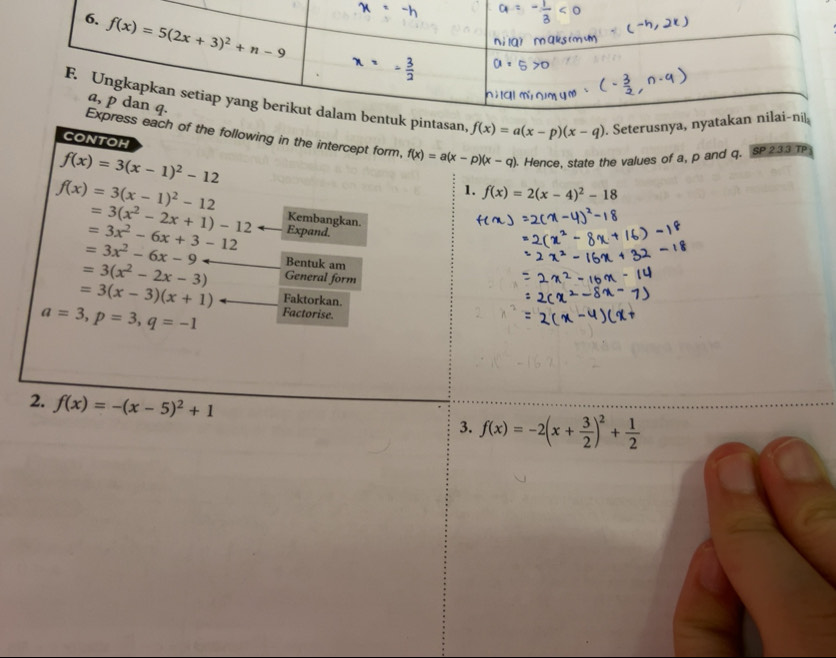 x = -h
a = -1/3 < 0
nilai maksimum = (-h, 2k)
6. f(x) = 5(2x + 3)² + n – 9
x = -3/2
a = 5 > 0
nilai minimum = (-3/2, n-9)
F. Ungkapkan setiap yang berikut dalam bentuk pintasan, f(x) = a(x – p)(x – q). Seterusnya, nyatakan nilai-
a, p dan q.
Express each of the following in the intercept form, f(x) = a(x – p)(x – q). Hence, state the values of a, p and q. SP 2.3.3 TP
CONTOH
f(x) = 3(x – 1)² – 12
f(x) = 3(x – 1)² – 12
= 3(x² – 2x + 1) – 12
Kembangkan.
Expand.
= 3x² – 6x + 3 – 12
= 3x² – 6x – 9
Bentuk am
General form
= 3(x² – 2x – 3)
= 3(x – 3)(x + 1)
Faktorkan.
Factorise.
a = 3, p = 3, q = –1
1. f(x) = 2(x – 4)² – 18
f(x) = 2(x-4)² - 18
= 2(x² - 8x + 16) - 18
= 2x² - 16x + 32 - 18
= 2x² - 16x - 14
= 2(x² - 8x - 7)
= 2(x - 4)(x +
2. f(x) = –(x – 5)² + 1
3. f(x) = –2(x + 3/2)² + 1/2